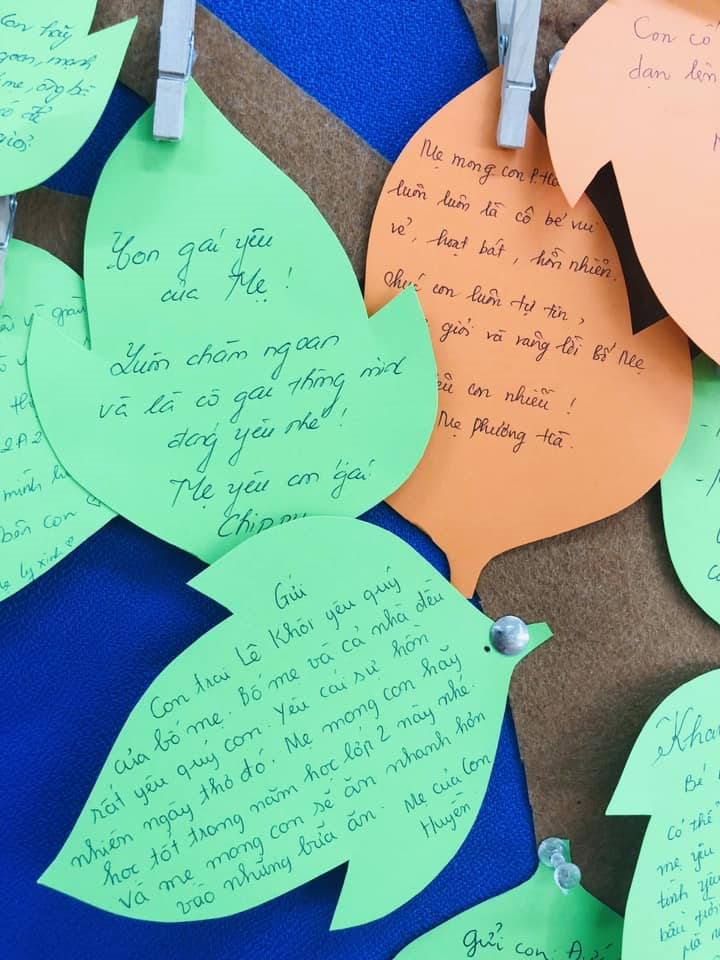 Con hãy
ngoan, mạnh
mẹ, ông bà
giỏi
Con gái yêu
của Mẹ !
Luôn chăm ngoan
và là cô gái thông minh
đáng yêu nhé !
Mẹ yêu con gái
Chippy
Mẹ mong con P.Hà
luôn luôn là cô bé vui
vẻ, hoạt bát, hồn nhiên.
chúc con luôn tự tin,
giỏi và vâng lời Bố Mẹ
yêu con nhiều !
Mẹ Phương Hà.
Con cố
dạn lên
2A2
minh
bên con
ly xinh
Gửi
Con trai Lê Khôi yêu quý
của bố mẹ. Bố mẹ và cả nhà đều
rất yêu quý con. Yêu cái sự hồn
nhiên ngây thơ đó. Mẹ mong con hãy
học tốt trong năm học lớp 2 này nhé.
và mẹ mong con sẽ ăn nhanh hơn
vào những bữa ăn.
Mẹ của Con
Huyền
Bé
Có thể
mẹ yêu
tình yêu
bầu trời
Mà
Gửi con